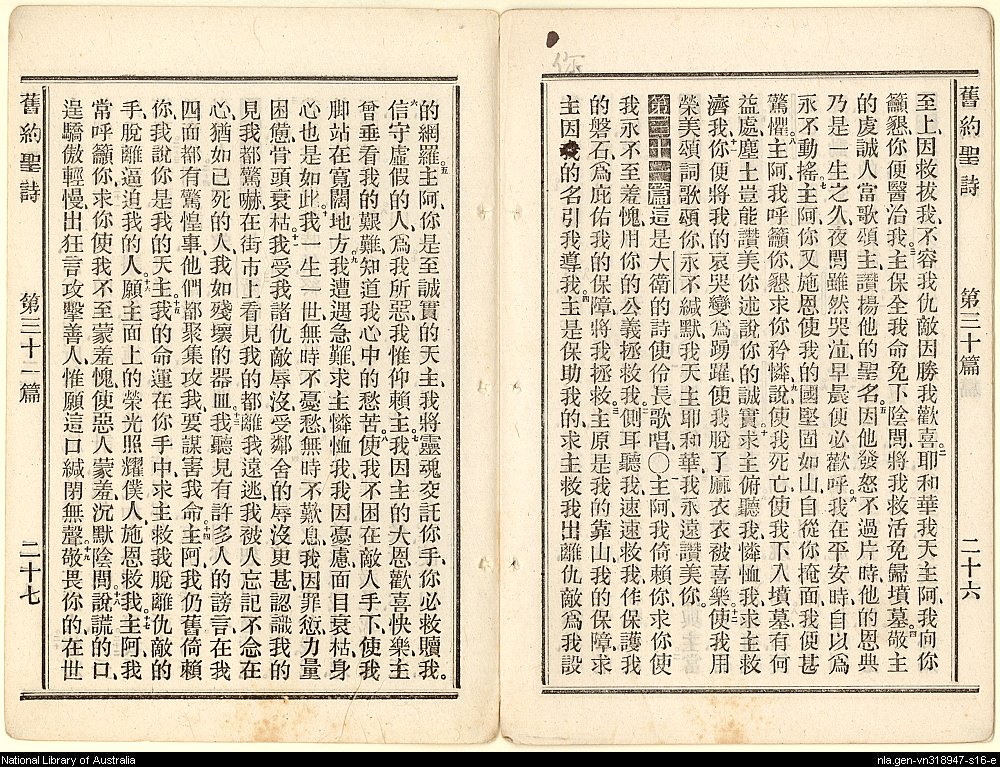 舊約聖詩 第三十篇 二十六
至上、因救拔我、不容我仇敵因勝我歡喜、二耶和華我天主阿、我向你
籲懇、你便醫治我、三主保全我命免下陰間、將我救活免歸墳墓、四敬主
的虔誠人當歌頌主、讚揚他的聖名、五因他發怒不過片時、他的恩典
乃是一生之久、夜間雖然哭泣、早晨便必歡呼、六我在平安時、自以爲
永不動搖、七主阿、你又施恩使我的國堅固如山、自從你掩面我便甚
驚懼、八主阿、我呼籲你、懇求你矜憐說、九使我死亡、使我下入墳墓、有何
益處、塵土豈能讚美你、述說你的誠實、十求主俯聽我、憐恤我、求主救
濟我、十一你便將我的哀哭變爲踴躍、使我脫了麻衣、衣被喜樂、十二使我用
榮美頌詞歌頌你、永不緘默、我天主耶和華、我永遠讚美你。
第三十一篇 這是大衛的詩使伶長歌唱〇一主阿、我倚賴你、求你使
我永不至羞愧、用你的公義拯救我、二側耳聽我、速速救我、作保護我
的磐石、爲庇佑我的保障、將我拯救、三主原是我的靠山、我的保障、求
主因我的名引我導我、四主是保助我的、求主救我出離仇敵爲我設
的網羅、五主阿、你是至誠實的天主、我將靈魂交託你手、你必救贖我。
六信守虛假的人、爲我所惡、我惟仰賴主、七我因主的大恩歡喜快樂、主
曾垂看我的艱難、知道我心中的愁苦、八使我不困在敵人手下、使我
脚站在寬闊地方、九我遭遇急難、求主憐恤我、我因憂慮面目衰枯、身
心也是如此、十我一生一世無時不憂愁、無時不歎息、我因罪愆力量
困憊、骨頭衰枯、十一我受我諸仇敵辱沒、受鄰舍的辱沒更甚、認識我的
見我都驚嚇、在街市上看見我的都離我遠逃、十二我被人忘記、不念在
心、猶如已死的人、我如殘壞的器皿、十三我聽見有許多人的謗言、在我
四面都有驚惶事、他們都聚集攻我、要謀害我命、十四主阿、我仍舊倚賴
你、我說你是我的天主、十五我的命運在你手中、求主救我脫離仇敵的
手、脫離逼迫我的人、十六願主面上的榮光照耀僕人、施恩救我、十七主阿、我
常呼籲你、求你使我不至蒙羞愧、使惡人蒙羞、沉默陰間、十八說謊的口、
逞驕傲輕慢出狂言攻擊善人、惟願這口緘閉無聲、十九敬畏你的、在世
舊約聖詩 第三十一篇 二十七
National Library of Australia
nla.gen-vn318947-s16-e